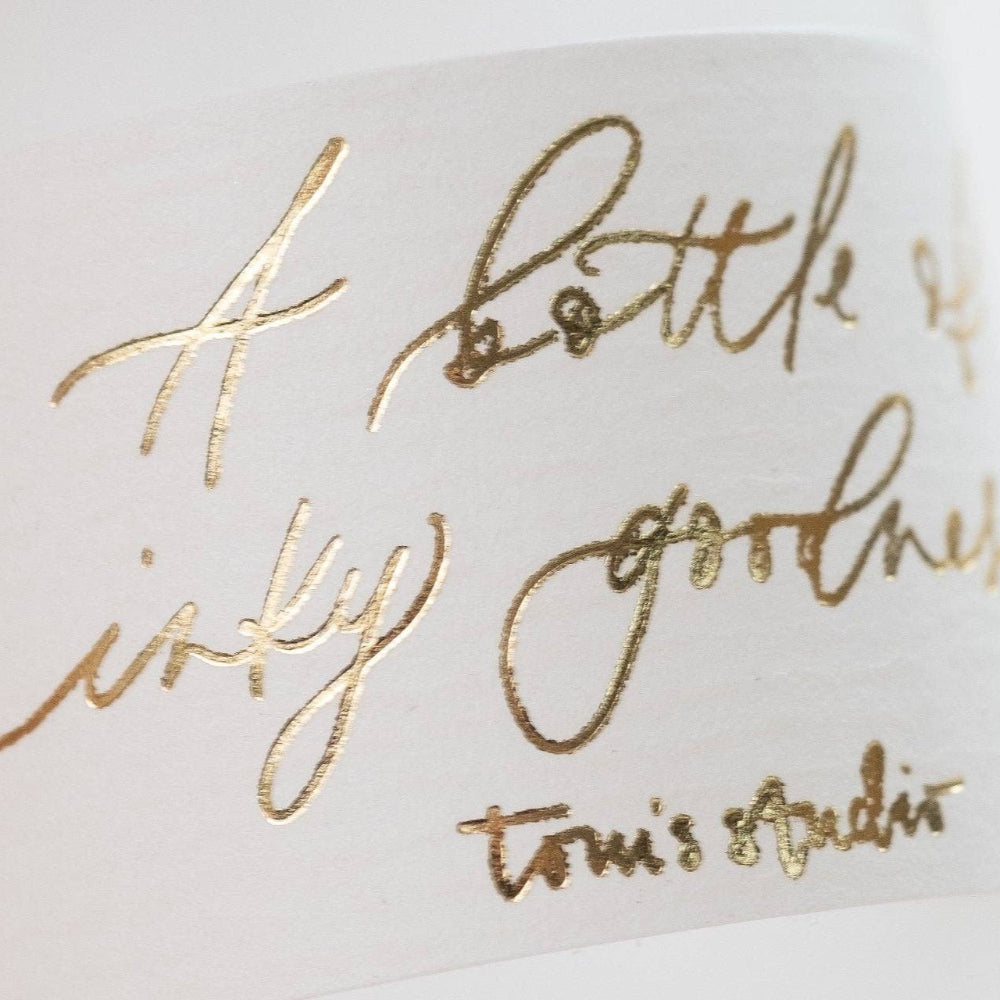 A bottle of
inky goodness
tom's studio